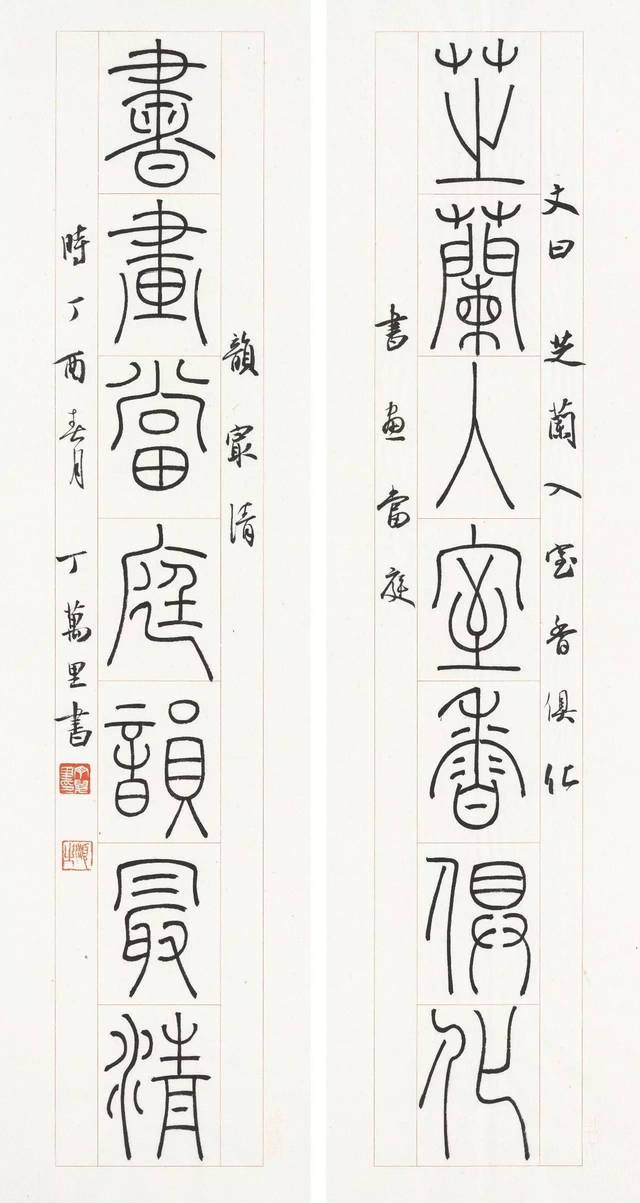 芝蘭入室香俱化
文曰 芝蘭入室香俱化
書畫當庭
書畫當庭韻最清
韻最清
時丁酉春月 丁萬里書